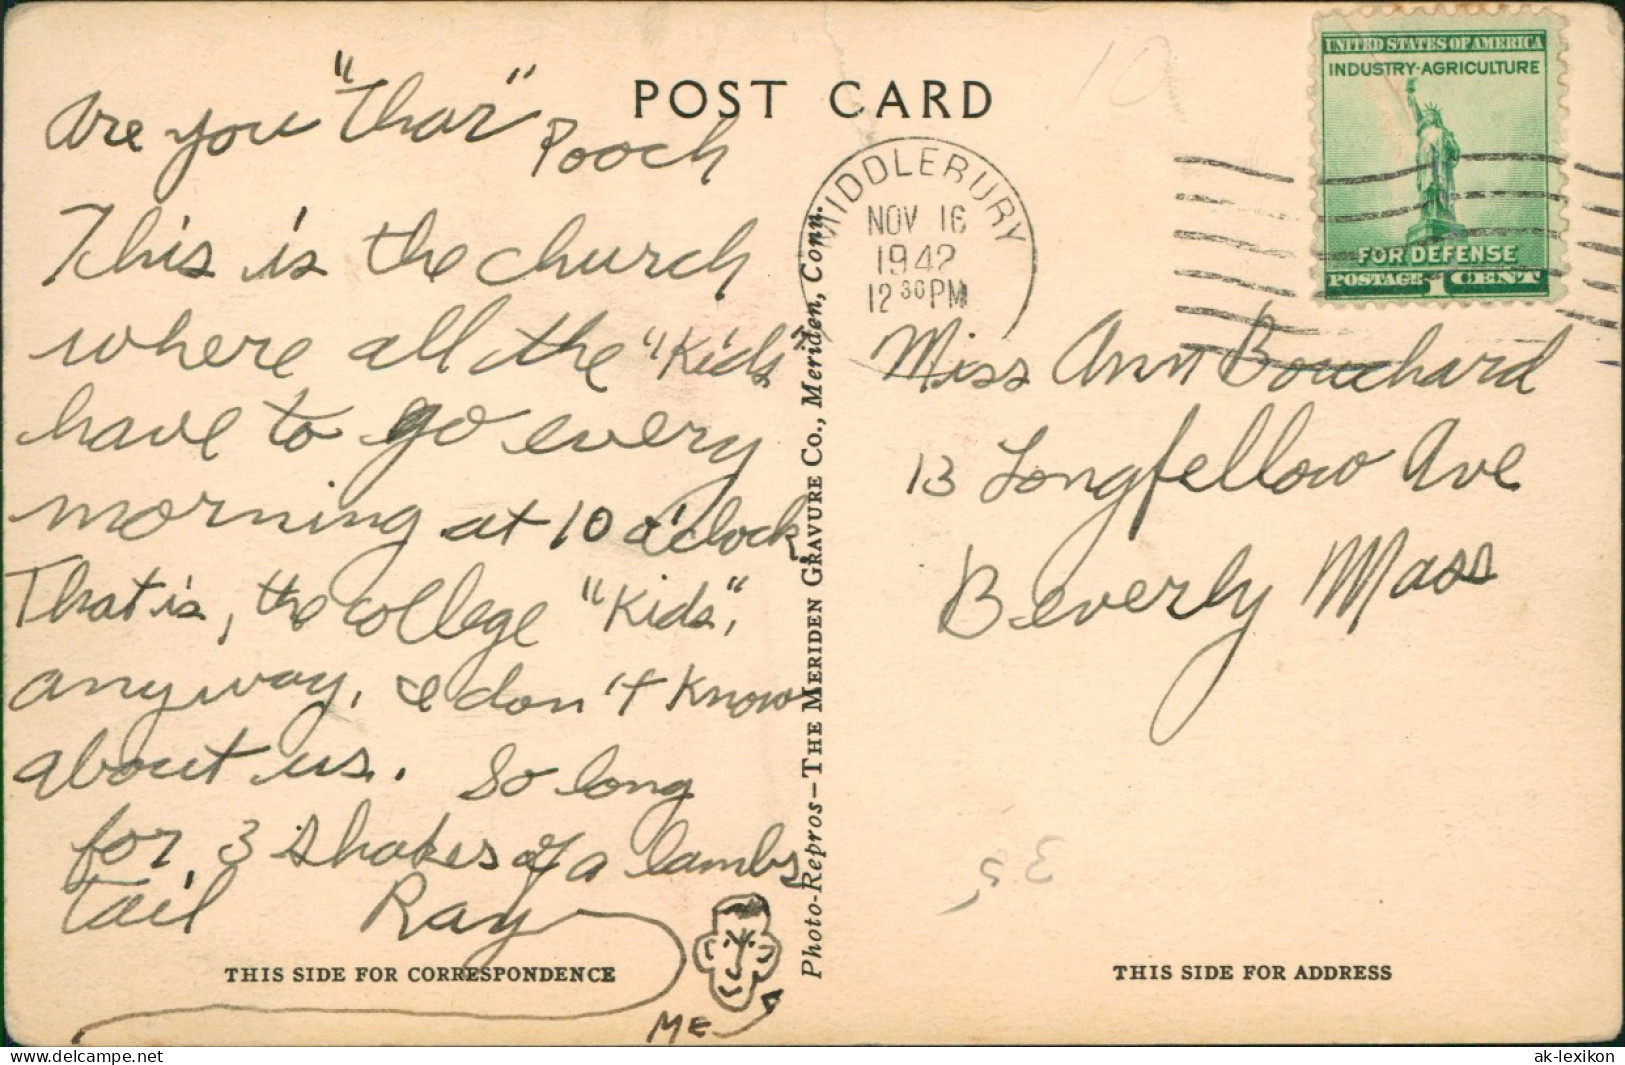 Are you "Thar" Pooch
This is the church
where all the "Kids"
have to go every
morning at 10 o'clock,
That is, the college "Kids",
anyway, I don't know
about us. So long
for 3 shakes of a lambs
tail Ray
ME
THIS SIDE FOR CORRESPONDENCE
POST CARD
Photo-Repros—THE MERIDEN GRAVURE CO., Meriden, Conn.
MIDDLEBURY
NOV 16
1942
12 30 PM
UNITED STATES OF AMERICA
INDUSTRY·AGRICULTURE
FOR DEFENSE
POSTAGE 1 CENT
Miss Ann Bouchard
13 Longfellow Ave
Beverly Mass
THIS SIDE FOR ADDRESS
10
www.delcampe.net
ak-lexikon